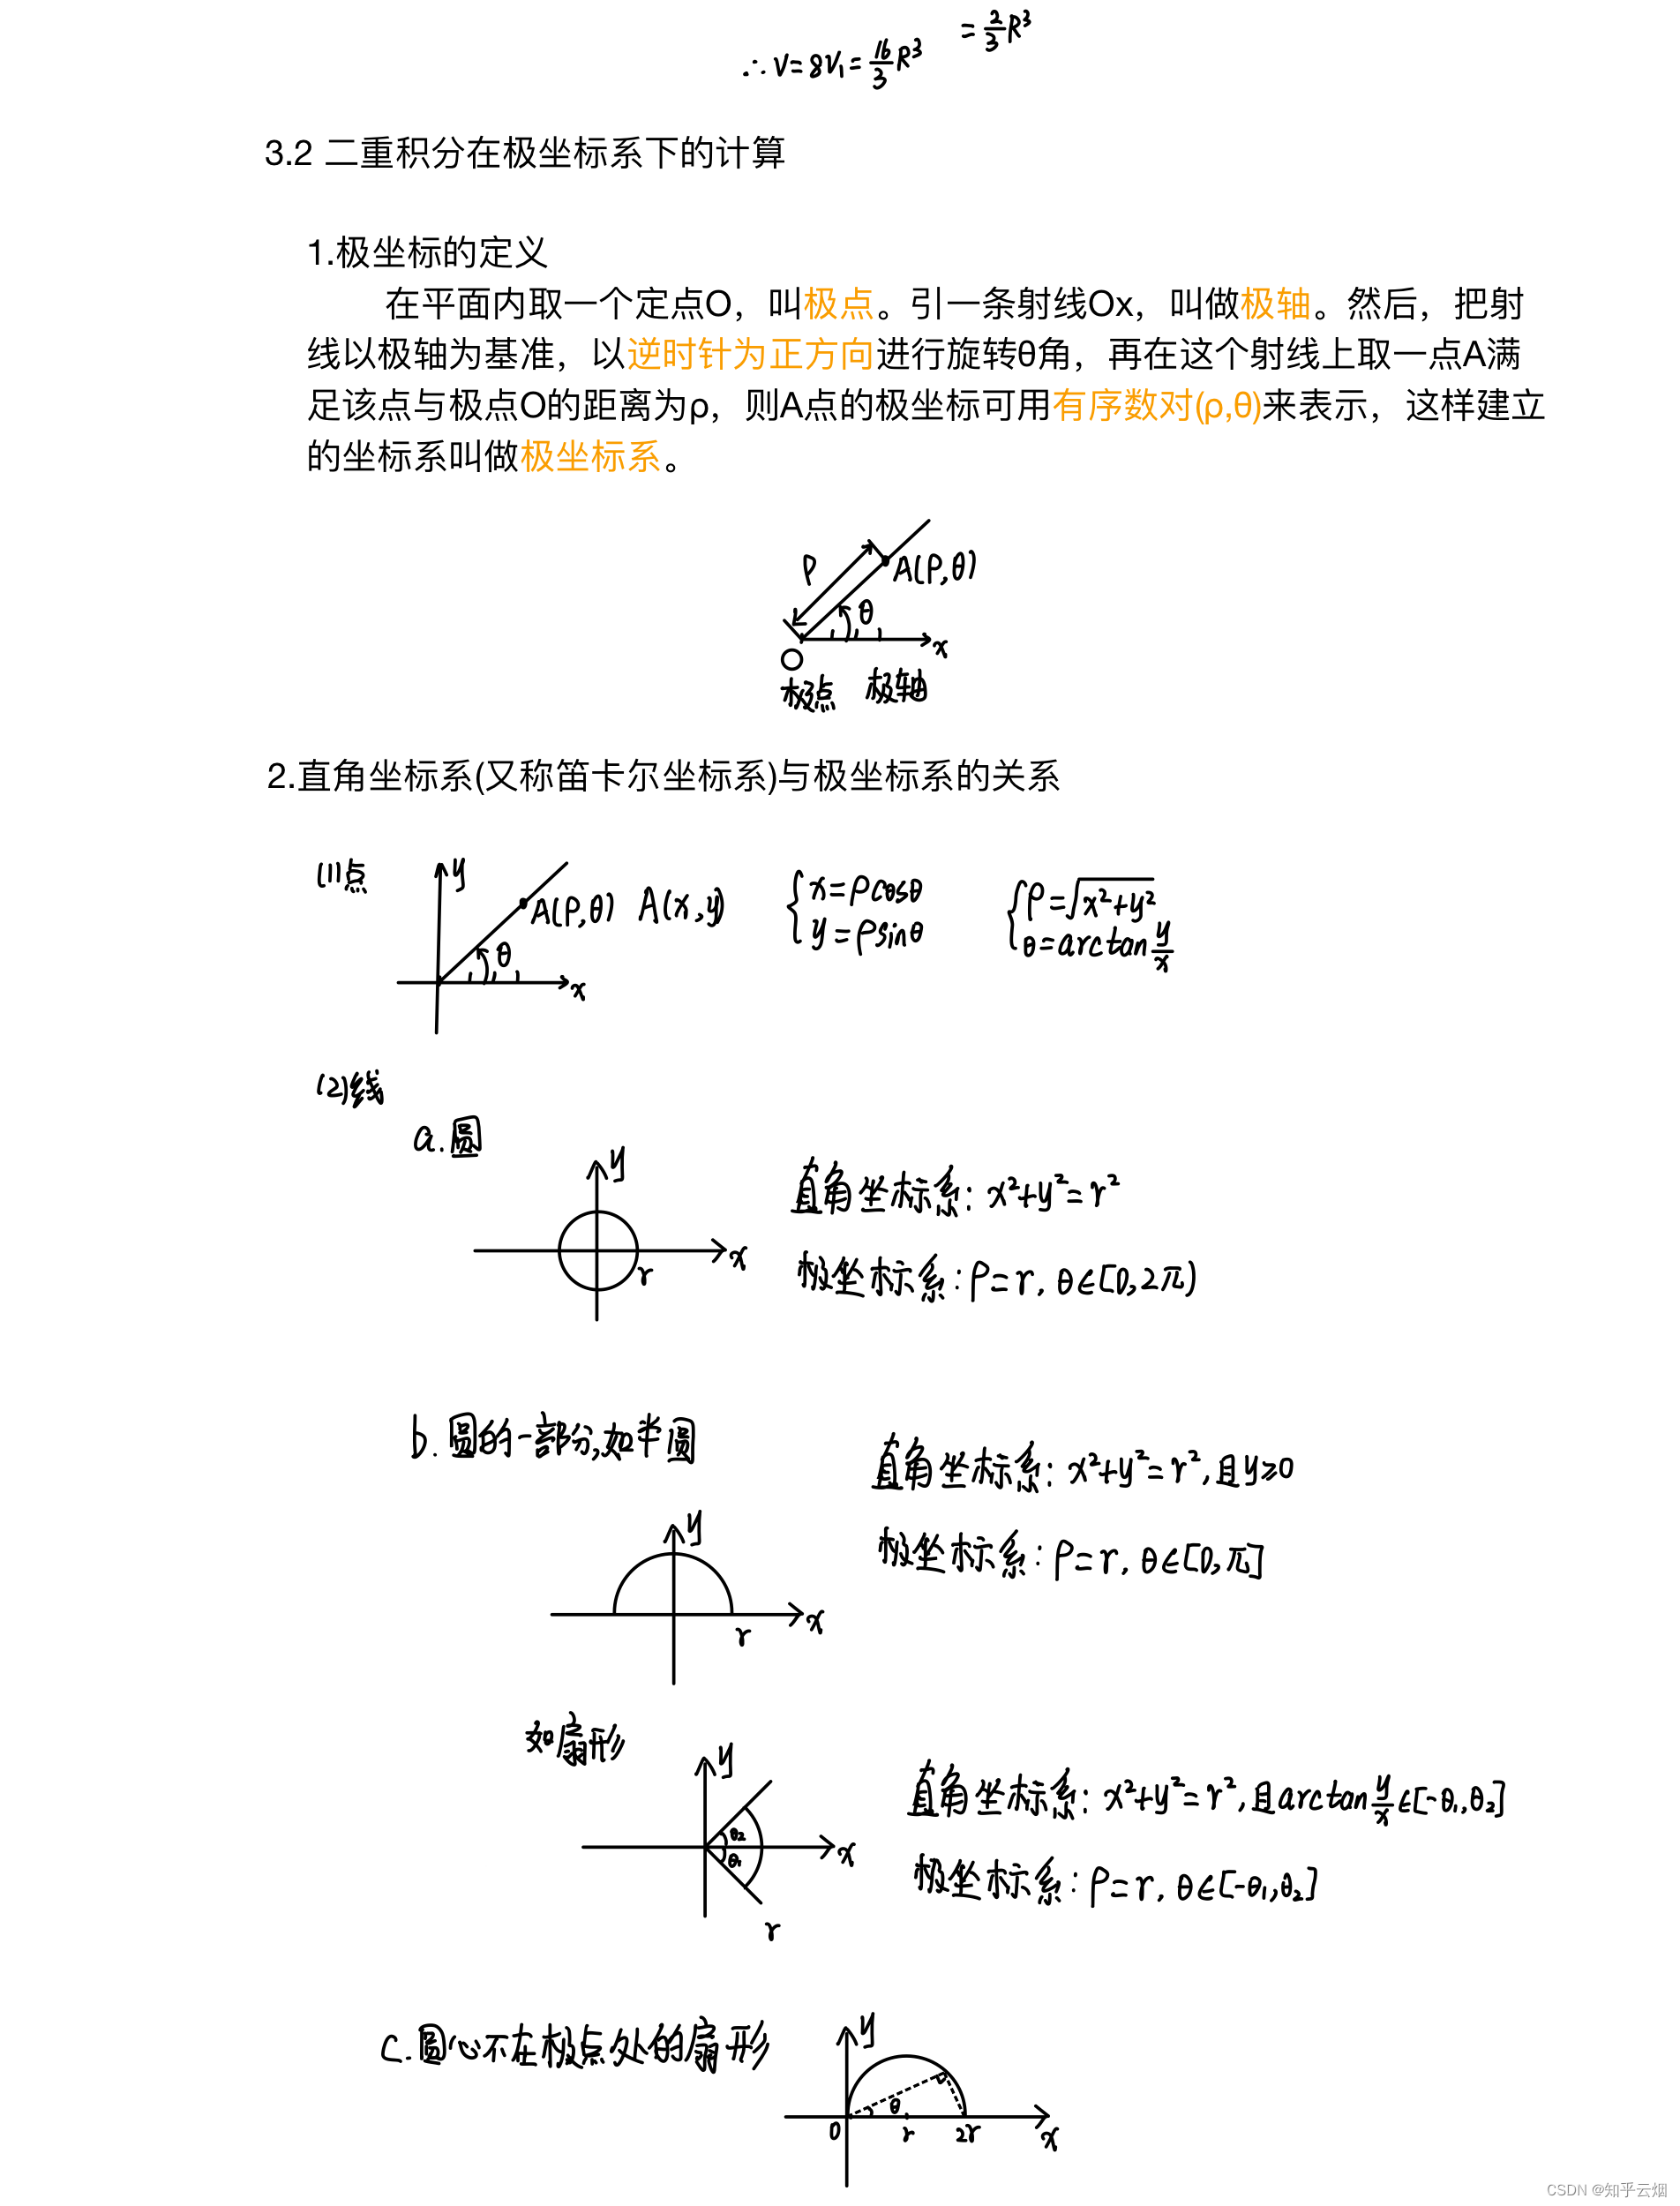 = 2/3 R³
∴ V = 8V₁ = 16/3 R³
3.2 二重积分在极坐标系下的计算
1.极坐标的定义
在平面内取一个定点O，叫极点。引一条射线Ox，叫做极轴。然后，把射
线以极轴为基准，以逆时针为正方向进行旋转θ角，再在这个射线上取一点A满
足该点与极点O的距离为ρ，则A点的极坐标可用有序数对(ρ,θ)来表示，这样建立
的坐标系叫做极坐标系。
ρ A(ρ,θ)
θ
x
O
极点 极轴
2.直角坐标系(又称笛卡尔坐标系)与极坐标系的关系
(1)点 y A(ρ,θ) A(x,y) θ x
{ x=ρcosθ
y=ρsinθ
{ ρ=√(x²+y²)
θ=arctan y/x
(2)线
a.圆
y x r
直角坐标系: x²+y²=r²
极坐标系: ρ=r, θ∈[0,2π)
b.圆的一部分,如半圆
直角坐标系: x²+y²=r²,且y≥0
极坐标系: ρ=r, θ∈[0,π]
y x r
如扇形
y θ₂ θ₁ x r
直角坐标系: x²+y²=r²,且arctan y/x ∈[-θ₁,θ₂]
极坐标系: ρ=r, θ∈[-θ₁,θ₂]
c.圆心不在极点处的扇形
y θ
0 r 2r x
CSDN @知乎云烟